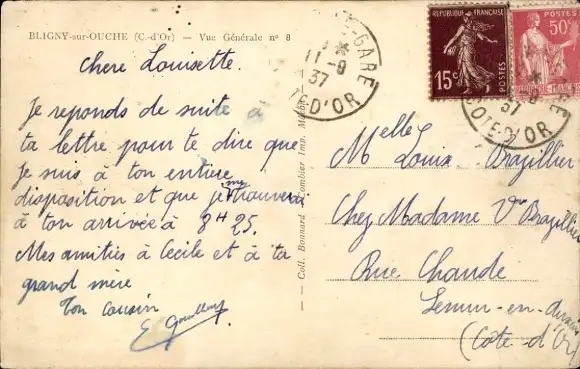 BLIGNY-sur-OUCHE (C.-d'Or) — Vue Générale n° 8
Chere Louisette.
Je reponds de suite à
ta lettre pour te dire que
je suis à ton entière
disposition et que je me trouverai
à ton arrivée à 8H 25.
Mes amitiés à Cecile et à ta
grand mère
Ton cousin
E
Coll. Bonnard Combier Imp.
GARE
11-8
37
D'OR
REPUBLIQUE FRANÇAISE
15c
POSTES
POSTES
50c
37
COTE-D'OR
Melle Brazillier
Chez Madame Vve Brazillier
Rue Chaude
Semur-en-Auxois
(Côte d'Or)